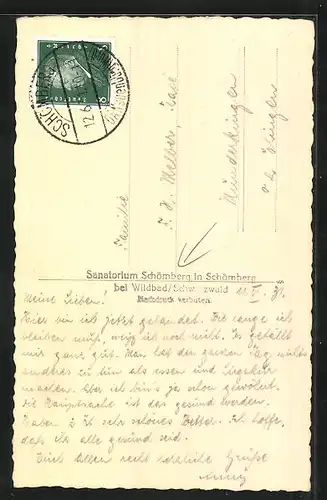 SCHÖMBERG
12.6
Familie
Sanatorium Schömberg in Schömberg
bei Wildbad/Schwarzwald
Nachdruck verboten.
Meine Lieben!
Hier bin ich jetzt gelandet. Wie lange ich
bleiben muß, weiß ich noch nicht. Es gefällt
mir ganz gut. Man hat den ganzen Tag nichts
anderes zu tun als essen und liegekur
machen. Aber ich bin's ja schon gewöhnt.
die Hauptsache ist das gesund werden.
Haben z. Zt. sehr schönes Wetter. Ich hoffe,
daß ihr alle gesund seid.
Euch allen recht herzliche Grüße